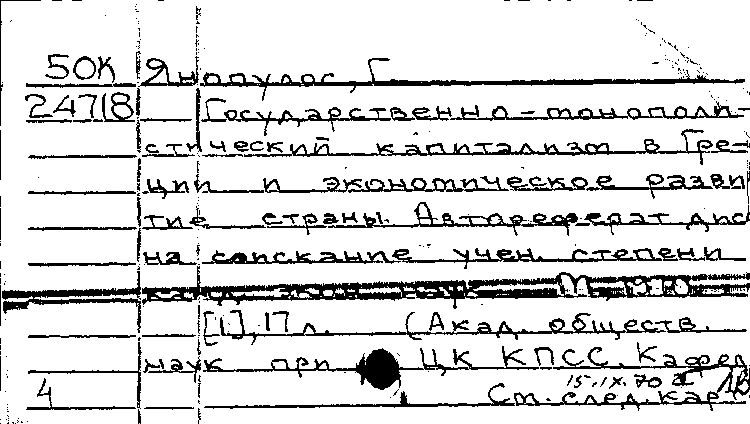 50К Янопулос, Г.
24718 Государственно-монополи-
стический капитализм в Гре-
ции и экономическое разви
тие страны. Автореферат дис
на соискание учен. степени
канд. экон. наук М., 1970
[1], 17 л. (Акад. обществ.
наук при ЦК КПСС. Кафед
15.IX.70
4 См. след. кар